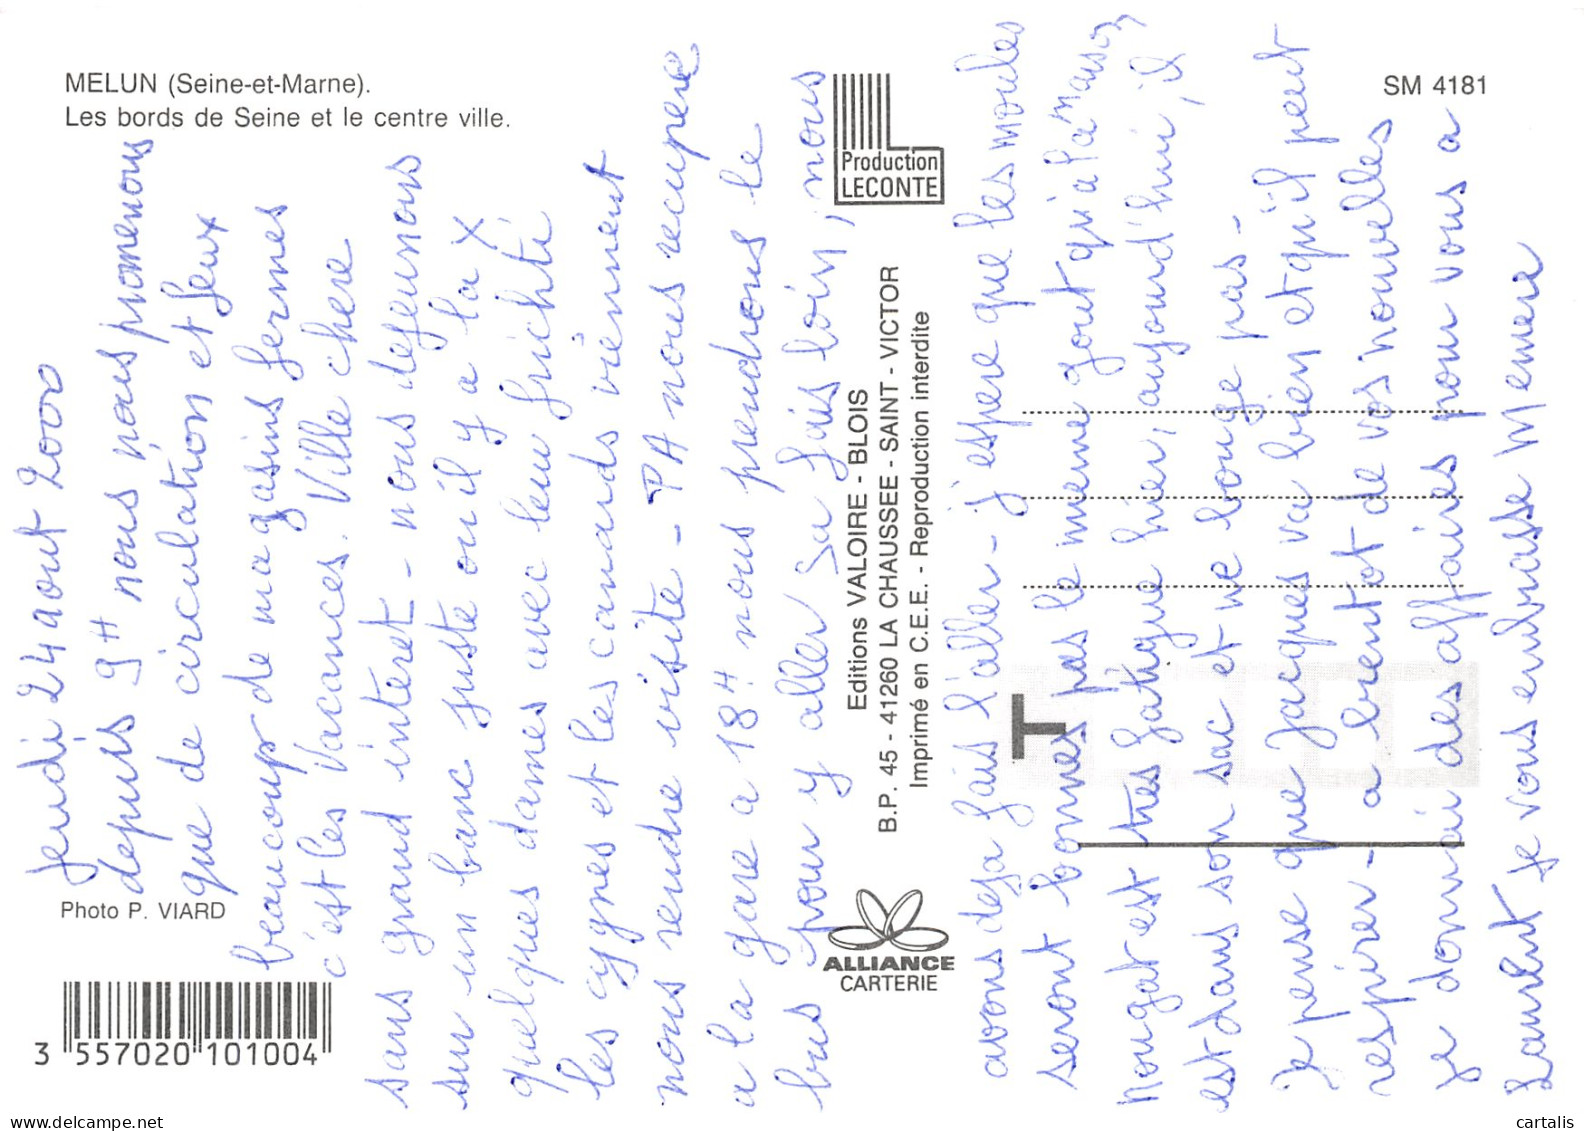 MELUN (Seine-et-Marne).
Les bords de Seine et le centre ville.
SM 4181
Production
LECONTE
Editions VALOIRE - BLOIS
B.P. 45 - 41260 LA CHAUSSEE - SAINT - VICTOR
Imprimé en C.E.E. - Reproduction interdite
T
ALLIANCE
CARTERIE
Photo P. VIARD
3 557020 101004
Jeudi 24 aout 2000
depuis 9H nous nous promenons
que de circulation et feux
beaucoup de magasins fermes
c'est les vacances. Ville chere
sans grand interet - nous dejeunons
sur un banc juste ou il y a la X
quelques dames avec leur frichti
les cygnes et les canards viennent
nous rendre visite - PA nous recupere
a la gare a 18H nous prendrons le
bus pour y aller su fais loin, nous
avons deja fais l'aller - j'espere que les moules
seront bonnes pas le meme gout qu'a la maison
Nougat est tres fatigue hier, aujourd'hui, il
est dans son sac et ne bouge pas -
Je pense que Jacques va bien et qu'il peut
respirer - a bientot de vos nouvelles
je dormai des affaires pour vous a
Laurent je vous embrasse Memere
www.delcampe.net
cartalis